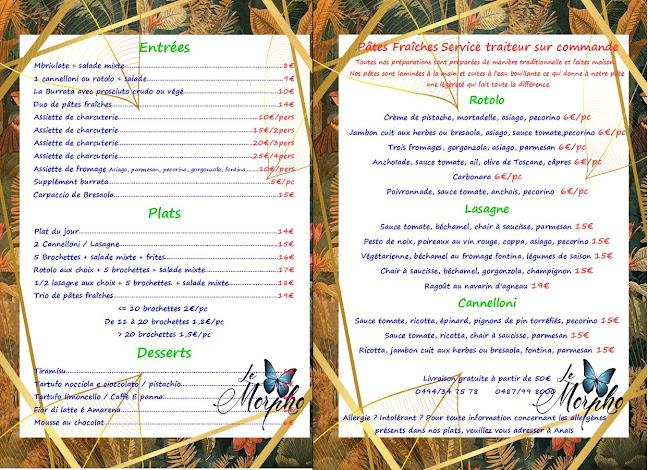 Entrées
Mbriulate + salade mixte 8€
1 cannelloni ou rotolo + salade 9€
La Burrata avec prosciuto crudo ou végé 10€
Duo de pâtes fraîches 14€
Assiette de charcuterie 10€/pers
Assiette de charcuterie 15€/2pers
Assiette de charcuterie 20€/3pers
Assiette de charcuterie 25€/4pers
Assiette de fromage Asiago, parmesan, pecorino, gorgonzola, fontina 10€/pers
Supplément burrata 5€/pc
Carpaccio de Bresaola 15€
Plats
Plat du jour 14€
2 Cannelloni / Lasagne 15€
5 Brochettes + salade mixte + frites 16€
Rotolo aux choix + 5 brochettes + salade mixte 17€
1/2 lasagne aux choix + 5 brochettes. + salade mixte 18€
Trio de pâtes fraîches 19€
<= 10 brochettes 2€/pc
De 11 à 20 brochettes 1,8€/pc
> 20 brochettes 1,5€/pc
Desserts
Tiramisu
Tartufo nocciola e cioccolato / pistachio
Tartufo limoncello / Caffè E panna
Fior di latte é Amarena
Mousse au chocolat 6€
Le Morpho
Pâtes Fraîches Service traiteur sur commande
Toutes nos préparations sont préparées de manière traditionnelle et faites maison.
Nos pâtes sont laminées à la main et cuites à l'eau bouillante ce qui donne à notre pâte
une légèreté qui fait toute la différence.
Rotolo
Crème de pistache, mortadelle, asiago, pecorino 6€/pc
Jambon cuit aux herbes ou bresaola, asiago, sauce tomate,pecorino 6€/pc
Trois fromages, gorgonzola, asiago, parmesan 6€/pc
Ancholade, sauce tomate, ail, olive de Toscane, câpres 6€/pc
Carbonara 6€/pc
Poivronnade, sauce tomate, anchois, pecorino 6€/pc
Lasagne
Sauce tomate, béchamel, chair à saucisse, parmesan 15€
Pesto de noix, poireaux au vin rouge, coppa, asiago, pecorino 15€
Végétarienne, béchamel au fromage fontina, légumes de saison 15€
Chair à saucisse, béchamel, gorgonzola, champignon 15€
Ragoût au navarin d'agneau 19€
Cannelloni
Sauce tomate, ricotta, épinard, pignons de pin torréfiés, pecorino 15€
Sauce tomate, ricotta, chair à saucisse, parmesan 15€
Ricotta, jambon cuit aux herbes ou bresaola, fontina, parmesan 15€
Livraison gratuite à partir de 50€
0494/34 75 78 0487/99 8000
Le Morpho
Allergie ? Intolérant ? Pour toute information concernant les allergènes
présents dans nos plats, veuillez vous adresser à Anaïs